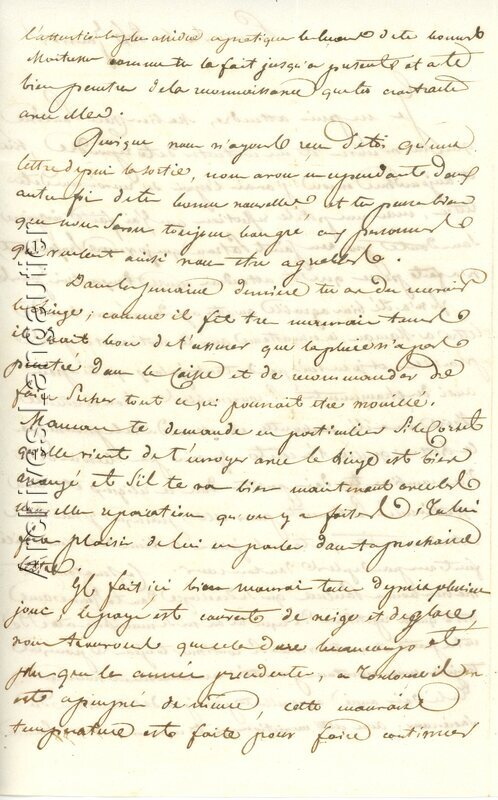 l'attention la plus assidue a pratiquer les leçons de tes bonnes
Maitresses comme tu la fait jusqu'a present et a te
bien penetrer de la reconnoissance que tu contracte
avec elles.
Quoique nous n'ayons reçu de toi qu'une
lettre depuis ta sortie, nous avons eu cependant deux
autre fois de tes bonnes nouvelles et tu pense bien
que nous savons toujours bon gré aux personnes
qui veulent ainsi nous être agreables.
Dans la semaine derniere tu as du recevoir
le linge; comme il fit tres mauvais tems
il était bon de t'assurer que la pluie n'a pas
penétré dans la Caisse et de recommander de
faire secher tout ce qui pourrait etre mouillé.
Maman te demande en particulier si le Corset
qu'elle vient de t'envoyer avec le linge est bien
arrangé et s'il te va bien maintenant avec les
reparation qu'on y a faites, Tu lui
fera plaisir de lui en parler dans ta prochaine
lettre.
Il fait ici bien mauvais tems depuis plusieurs
jours, le pays est couvert de neige et de glace,
nous trouvons que cela dure beaucoup et
plus que les années precedentes, a Toulouse il en
est a peu pré de même, cette mauvaise
temperature est faite pour faire continuer
Archives Lamoureux